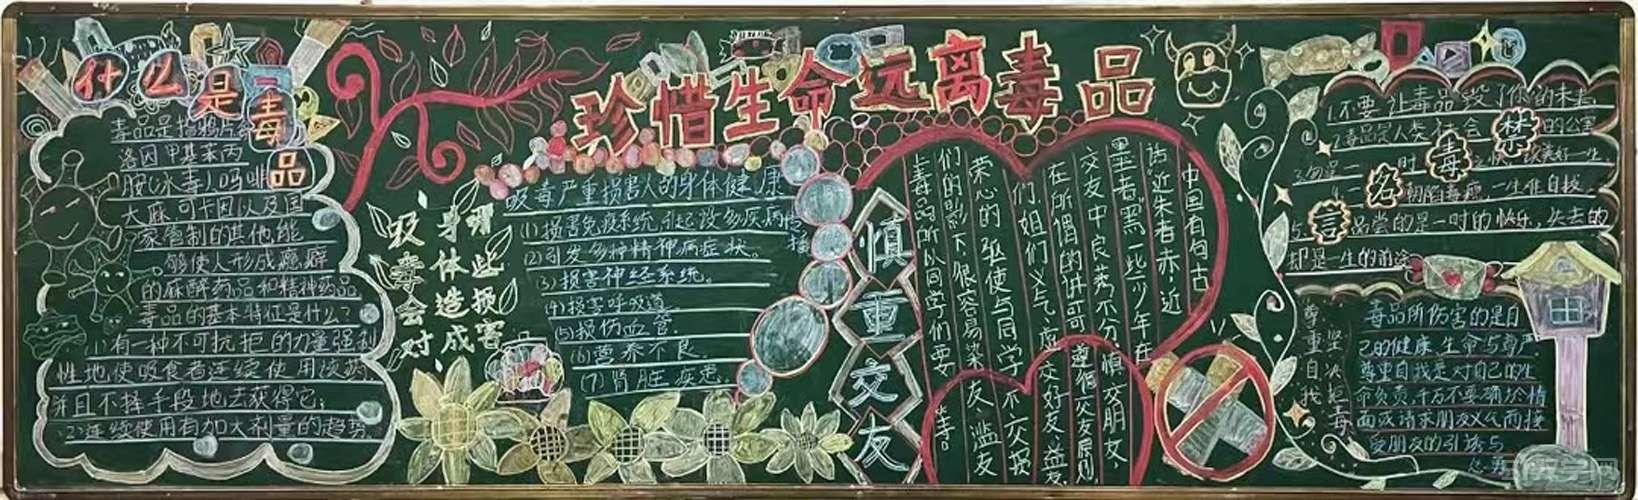 珍惜生命远离毒品
什么是毒品
毒品是指鸦片
洛因甲基苯丙
胺(冰毒)吗啡
大麻可卡因以及国
家管制的其他能
够使人形成瘾癖
的麻醉药品和精神药品
毒品的基本特征是什么?
(1)有一种不可抗拒的力量强制
性地使吸食者连续使用该药
并且不择手段地去获得它;
(2)连续使用有加大剂量的趋势
吸毒会对
身体造成
哪些损害
吸毒严重损害人的身体健康
(1)损害免疫系统,引起设多疾病传播
(2)引发多种精神病症状。
(3)损害神经系统。
(4)损害呼吸道
(5)损伤血管.
(6)营养不良.
(7)肾脏疾患
慎重交友
中国有句古
话"近朱者赤,近
墨者黑"一些少年在
交友中良莠不分,慎交朋友,
在所谓的讲可遵循交友原则
们,姐们义气虚交好友、益友
荣心的驱使与同学不交损
们的影下很容易染友、滥友
上毒品所以同学们要坐吉。
禁毒名言
1.不要让毒品毁了你的未来
2.毒品是人类社会的公害
3.勿呈一时之快
一朝陷毒瘾,一生难自拔
5.品尝的是一时的快乐,失去的
却是一生的前途
尊重自我
坚决拒毒
毒品所伤害的是自
己的健康生命与尊严
尊重自我是对自己的生
命负责,千万不要碍於情
面或讲求朋友义气而接
受朋友的引诱与